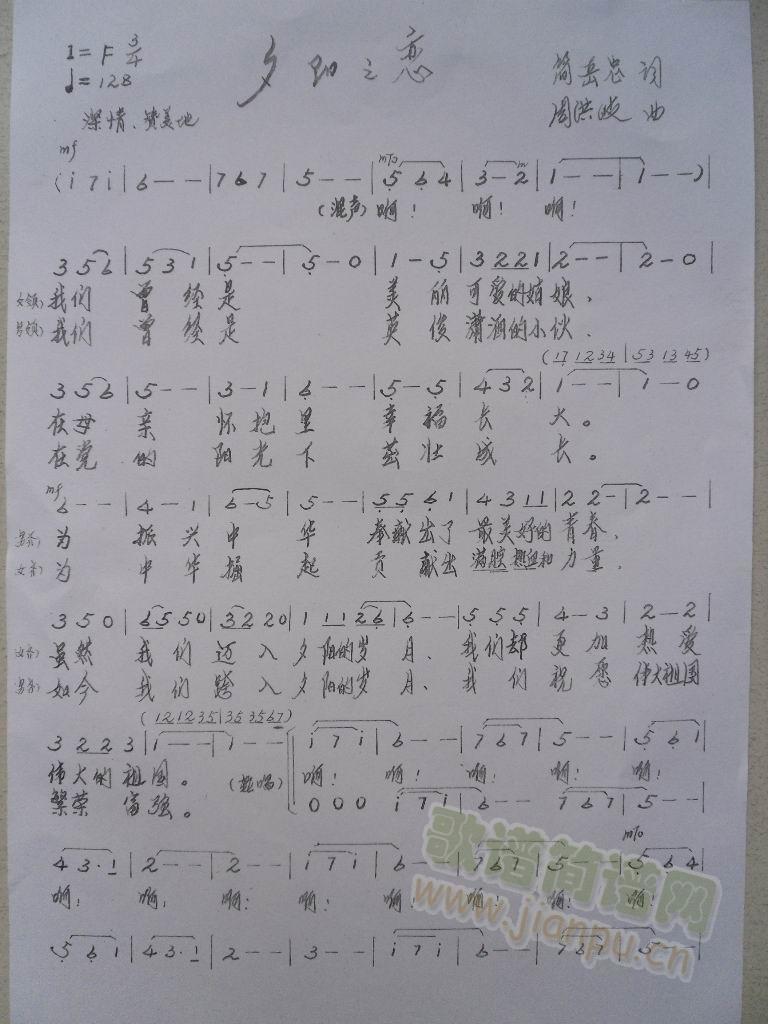 1=F 3/4
♩=128
夕阳之恋
简岳忠 词
周洪岐 曲
深情、赞美地
mf
(i 7 i | 6 - - | 7 6 7 | 5 - - | 5 6 4 | 3 - 2 | 1 - - | 1 - - ) |
(混声) 啊! 啊! 啊!
3 5 6 | 5 3 1 | 5 - - | 5 - 0 | 1 - 5 | 3 2 2 1 | 2 - - | 2 - 0
女领) 我们 曾 经 是 美 丽 可爱的姑 娘、
男领) 我们 曾 经 是 英 俊 潇洒的小伙.
(17 1234 | 53 13 45)
3 5 6 | 5 - - | 3 - 1 | 6 - - | 5 - 5 | 4 3 2 | 1 - - | 1 - 0
在母 亲 怀 抱 里 幸 福 长 大。
在党 的 阳 光 下 茁 壮 成 长。
mf
6 - - | 4 - 1 | 6 - 5 | 5 - - | 5 5 6 1 | 4 3 1 1 | 2 2 - | 2 - -
男齐) 为 振 兴 中 华 奉献出了 最美好的 青春、
女齐) 为 中 华 掘 起 贡 献出 满腔热血和 力量.
3 5 0 | 6 5 5 0 | 3 2 2 0 | 1 1 1 2 6 | 6 - - | 5 5 5 | 4 - 3 | 2 - 2
女齐) 虽然 我们 迈入 夕阳的岁 月、 我们却 更 加 热 爱
男齐) 如今 我们 跨入 夕阳的岁 月、 我们祝 愿 伟大祖国
(12 12 35 | 35 35 67)
3 2 2 3 | 1 - - | 1 - - | i 7 i | 6 - - | 7 6 7 | 5 - - | 5 6 1 |
伟大的 祖国。 啊! 啊! 啊! 啊! 啊!
繁荣 富强。
0 0 0 | i 7 i | 6 - - | 7 6 7 | 5 - - |
mTo
4 3· 1 | 2 - - | 2 - - | i 7 i | 6 - - | 7 6 7 | 5 - - | 5 6 4 |
啊! 啊! 啊! 啊! 啊! 啊! 啊! 啊!
5 6 1 | 4 3· 1 | 2 - - | 3 - - | i 7 i | 6 - - | 7 6 7 | 5 - - |
歌谱简谱网
www.jianpu.cn